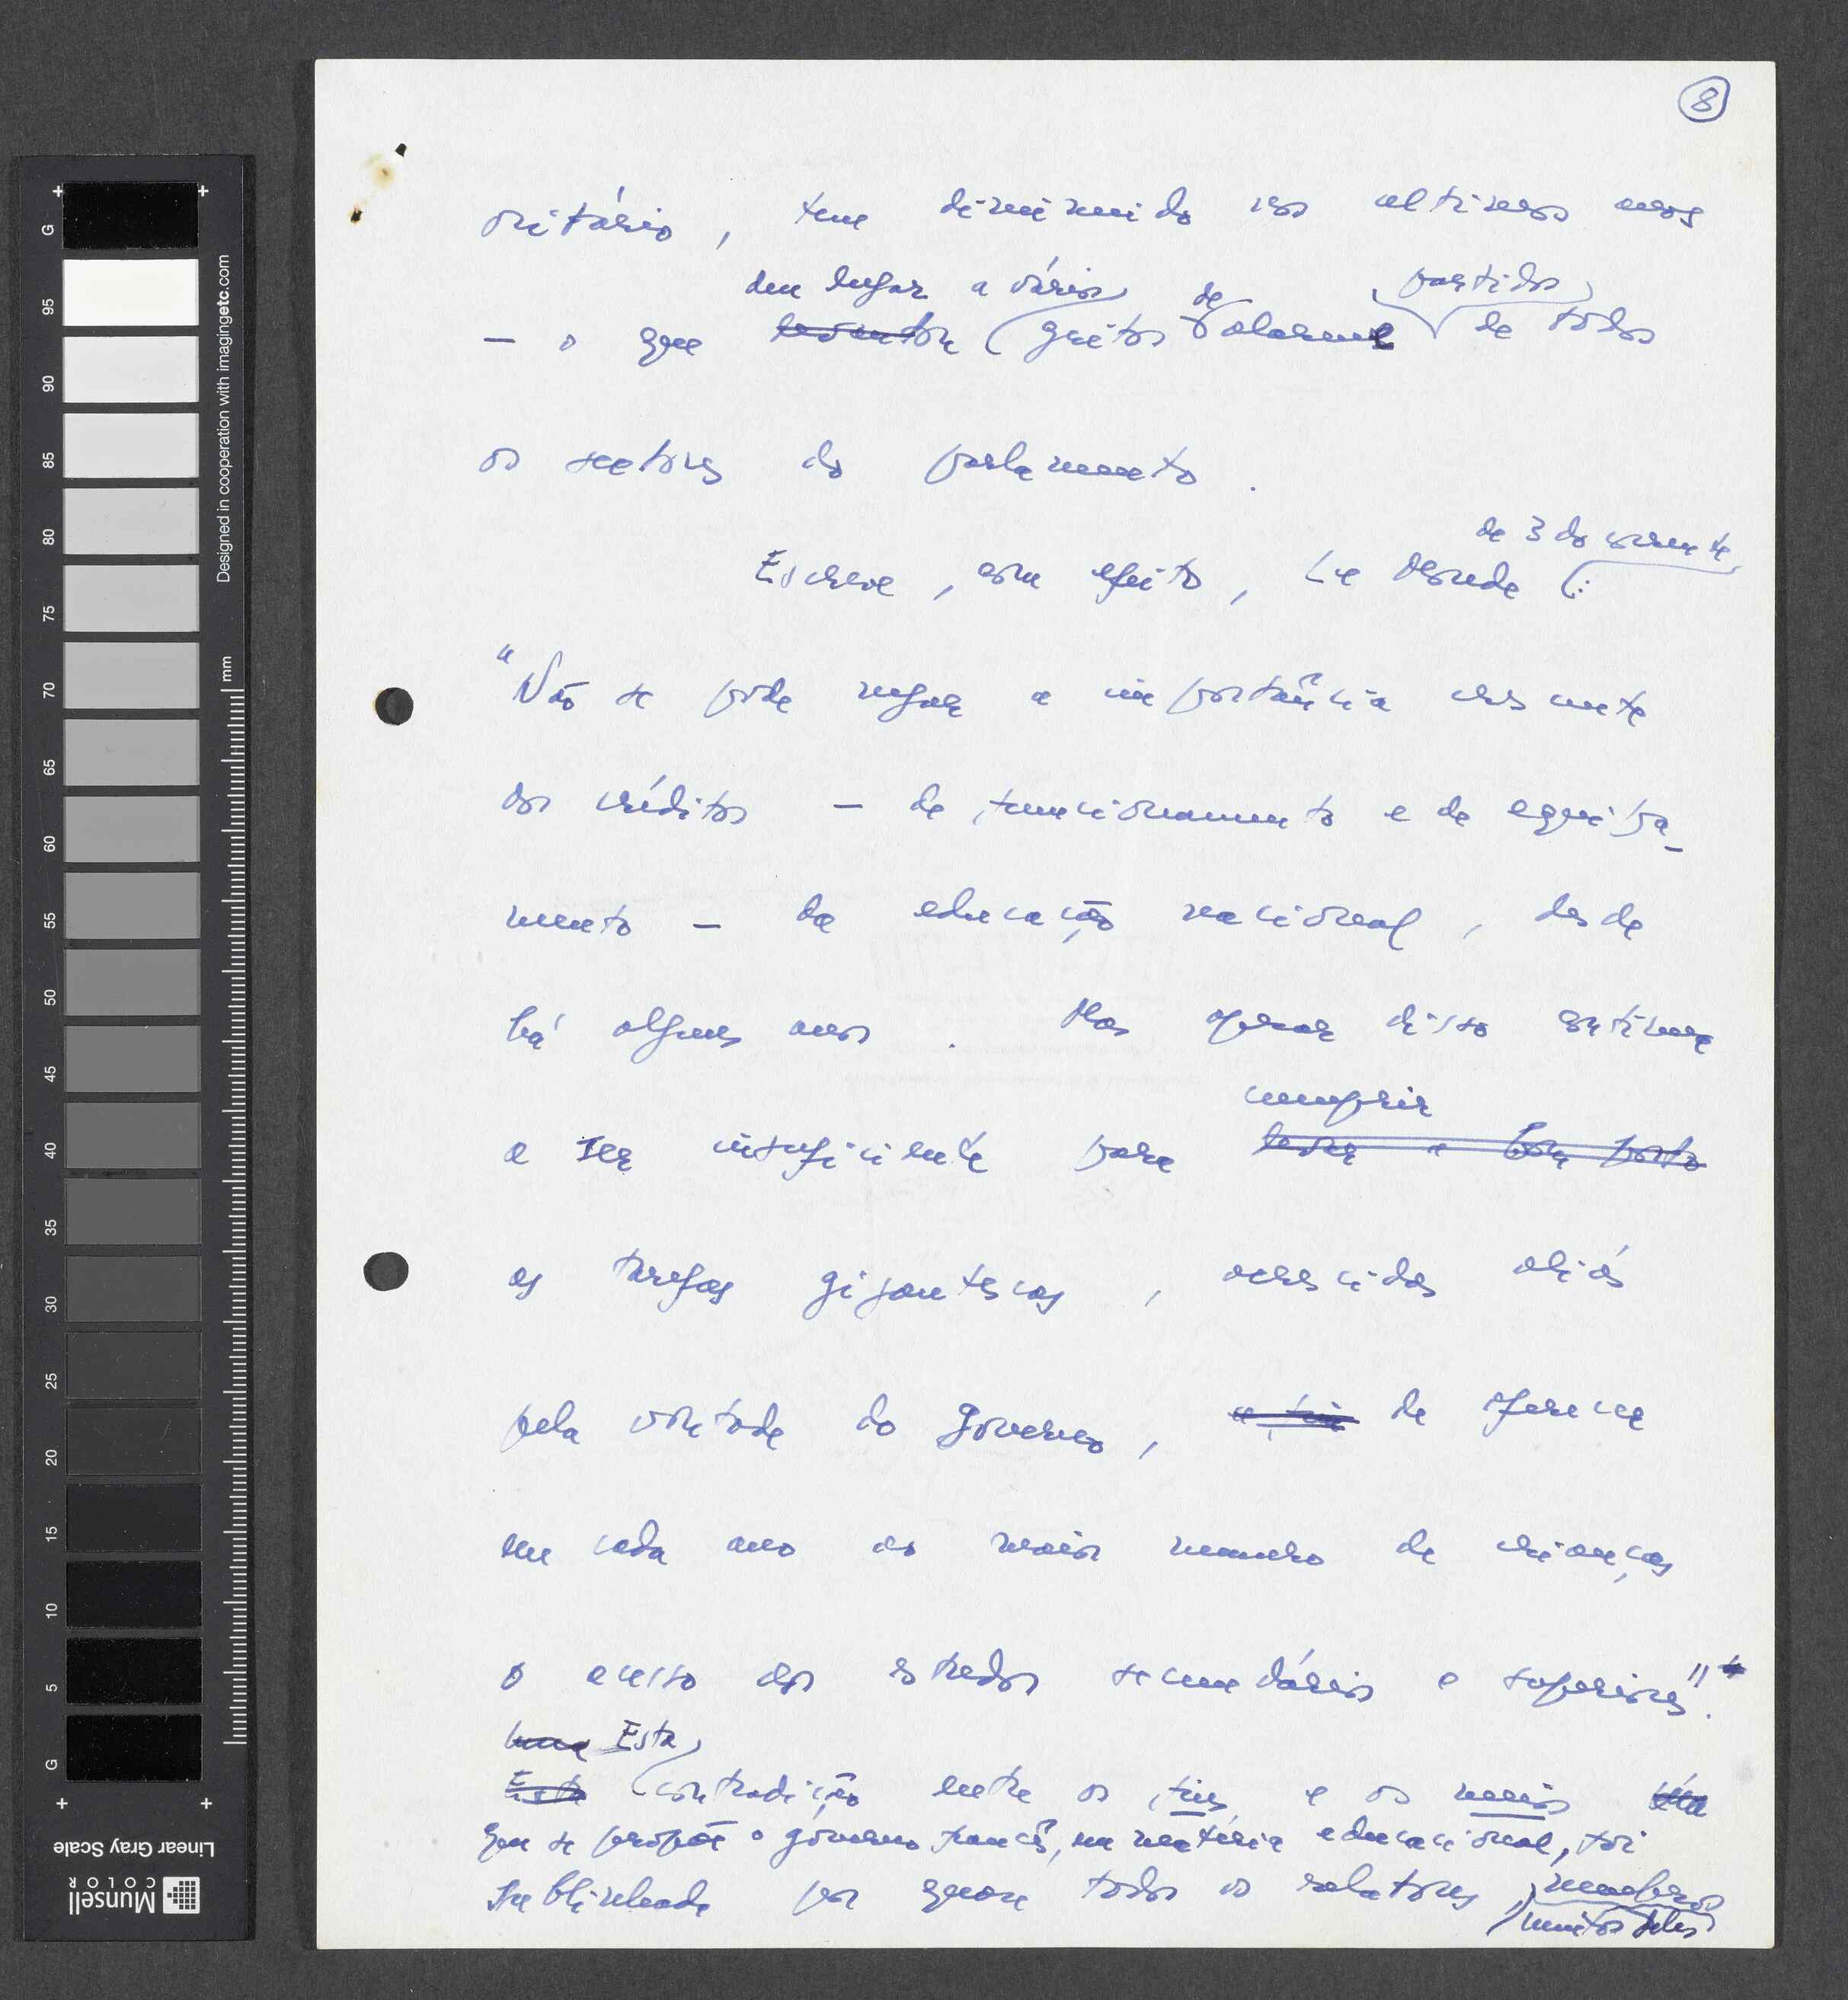 8
oritário, tem diminuido nos ultimos anos
deu lugar a vários de partidos
— o que levantou gritos alarme de todos
os sectores do parlamento.
de 3 do corrente
Escreve, com efeito, Le Monde :
"Não se pode negar a importância crescente
dos créditos — de funcionamento e de equipa-
mento — da educação nacional, desde
há alguns anos. Mas apesar disso continua
cumprir
a ser insuficiente para levar a bom porto
as tarefas gigantescas, acrescidas aliás
pela vontade do governo, a fim de oferecer
em cada ano ao maior numero de crianças
o acesso aos estudos secundários e superiores".
uma Esta
Esta contradição entre os fins e os meios
que se propõe o governo francês, em matéria educacional, foi
sublinhada por quase todos os relatores, membros
muitos deles
Designed in cooperation with imagingetc.com
mm
G 95 90 85 80 75 70 65 60 55 50 45 40 35 30 25 20 15 10 5 G
Linear Gray Scale
Munsell
COLOR